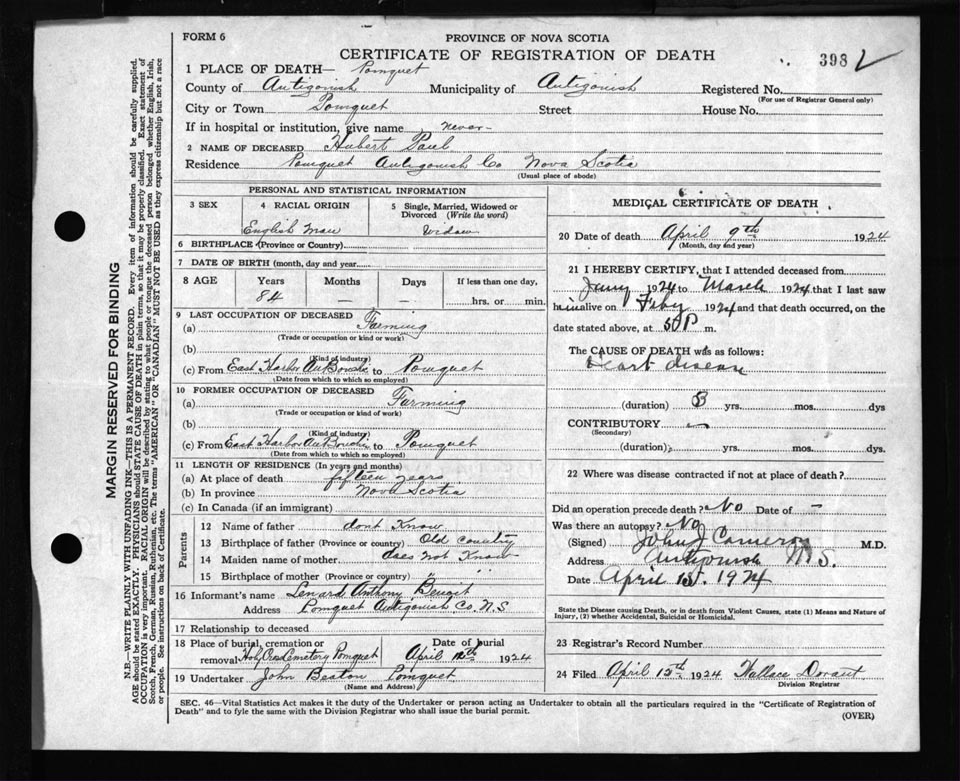 FORM 6
PROVINCE OF NOVA SCOTIA
CERTIFICATE OF REGISTRATION OF DEATH
398
1 PLACE OF DEATH— Pomquet
County of Antigonish Municipality of Antigonish Registered No.
(For use of Registrar General only)
City or Town Pomquet Street House No.
If in hospital or institution, give name never
2 NAME OF DECEASED Hubert Paul
Residence Pomquet Antigonish Co Nova Scotia
(Usual place of abode)
PERSONAL AND STATISTICAL INFORMATION
3 SEX 4 RACIAL ORIGIN 5 Single, Married, Widowed or Divorced (Write the word)
English man Widow
6 BIRTHPLACE (Province or Country)
7 DATE OF BIRTH (month, day and year
8 AGE Years Months Days If less than one day,
84 — — hrs. or min.
9 LAST OCCUPATION OF DECEASED
(a) Farming
(Trade or occupation or kind of work)
(b)
(Kind of industry)
(c) From East Harbor AuBouche to Pomquet
(Date from which to which so employed)
10 FORMER OCCUPATION OF DECEASED
(a) Farming
(Trade or occupation or kind of work)
(b)
(Kind of industry)
(c) From East Harbor AuBouche to Pomquet
(Date from which to which so employed)
11 LENGTH OF RESIDENCE (In years and months)
(a) At place of death fifteen years
(b) In province Nova Scotia
(c) In Canada (if an immigrant)
Parents
12 Name of father dont Know
13 Birthplace of father (Province or country) Old country
14 Maiden name of mother does not Know
15 Birthplace of mother (Province or country) " "
16 Informant's name Lenard Anthony Benoit
Address Pomquet Antigonish Co. N.S
17 Relationship to deceased
18 Place of burial, cremation or removal Holy Cross Cemetery Pomquet
Date of burial April 12th 1924
19 Undertaker John Beaton Pomquet
(Name and Address)
MEDICAL CERTIFICATE OF DEATH
20 Date of death April 9th 1924
(Month, day and year)
21 I HEREBY CERTIFY, that I attended deceased from
Jany 1924 to March 1924 that I last saw
him alive on Feby 1924 and that death occurred, on the
date stated above, at P m.
The CAUSE OF DEATH was as follows:
Heart disease
(duration) 3 yrs. mos. dys
CONTRIBUTORY
(Secondary)
(duration) yrs. mos. dys.
22 Where was disease contracted if not at place of death?
Did an operation precede death? No Date of —
Was there an autopsy? No
(Signed) John J Cameron M.D.
Address Antigonish N S.
Date April 1924
State the Disease causing Death, or in death from Violent Causes, state (1) Means and Nature of Injury, (2) whether Accidental, Suicidal or Homicidal.
23 Registrar's Record Number
24 Filed April 15th 1924 Wallace Dorant
Division Registrar
SEC. 46—Vital Statistics Act makes it the duty of the Undertaker or person acting as Undertaker to obtain all the particulars required in the "Certificate of Registration of
Death" and to fyle the same with the Division Registrar who shall issue the burial permit.
(OVER)
MARGIN RESERVED FOR BINDING
N.B.—WRITE PLAINLY WITH UNFADING INK—THIS IS A PERMANENT RECORD. Every item of information should be carefully supplied.
AGE should be stated EXACTLY. PHYSICIANS should STATE CAUSE OF DEATH in plain terms, so that it may be properly classified. Exact statement of
OCCUPATION is very important. RACIAL ORIGIN will be described by stating to what people or tongue the deceased person belonged whether English, Irish,
Scotch, French, German, Russian, Ruthenian, etc. The terms "AMERICAN" OR "CANADIAN" MUST NOT BE USED as they express citizenship but not a race
or people. See instructions on back of Certificate.